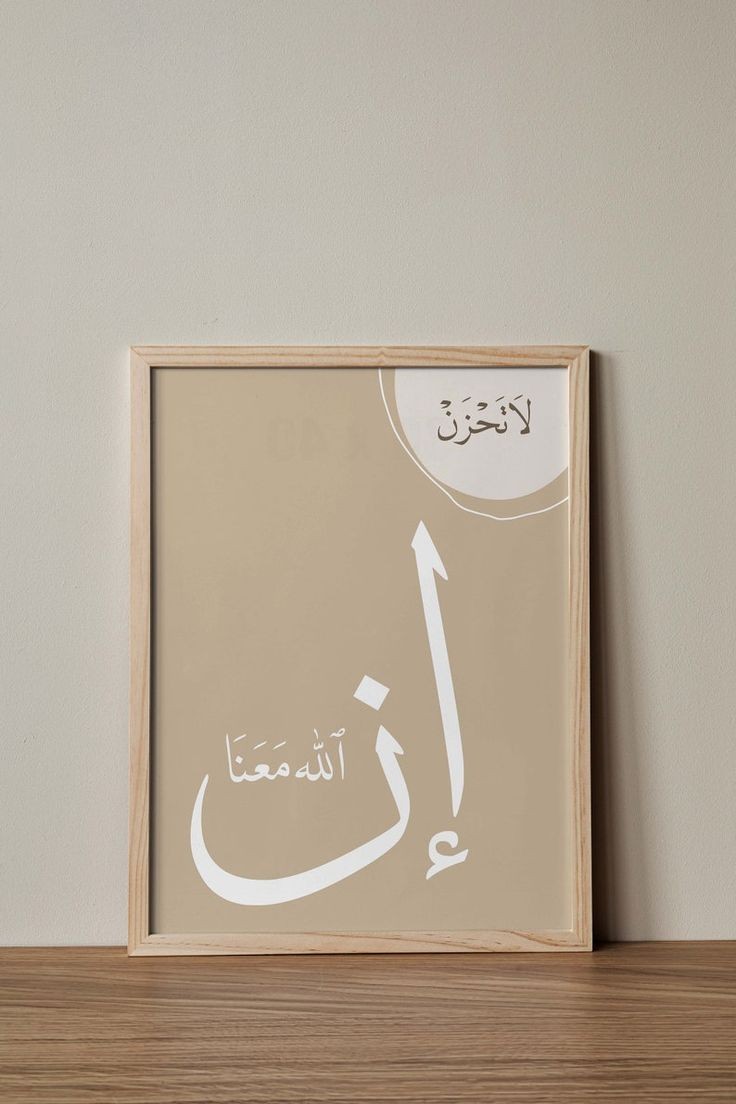 لَا تَحْزَنْ
إن
ٱللَّه مَعَنَا